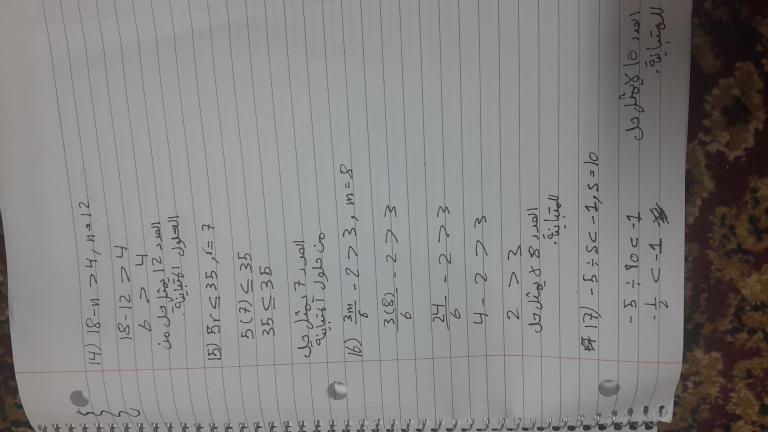 14) 18-n > 4, n = 12
18-12 > 4
6 > 4
العدد 12 يمثل حل من
الحلول المتباينة.
15) 5r ≤ 35, r = 7
5(7) ≤ 35
35 ≤ 35
العدد 7 يمثل حل
من حلول المتباينة
16) 3m/6 - 2 > 3, m = 8
3(8)/6 - 2 > 3
24/6 - 2 > 3
4 - 2 > 3
2 > 3
العدد 8 لا يمثل حل
للمتباينة.
17) -5 ÷ s < -1, s = 10
-5 ÷ 10 < -1
-1/2 < -1
العدد 10 لا يمثل حل
للمتباينة.